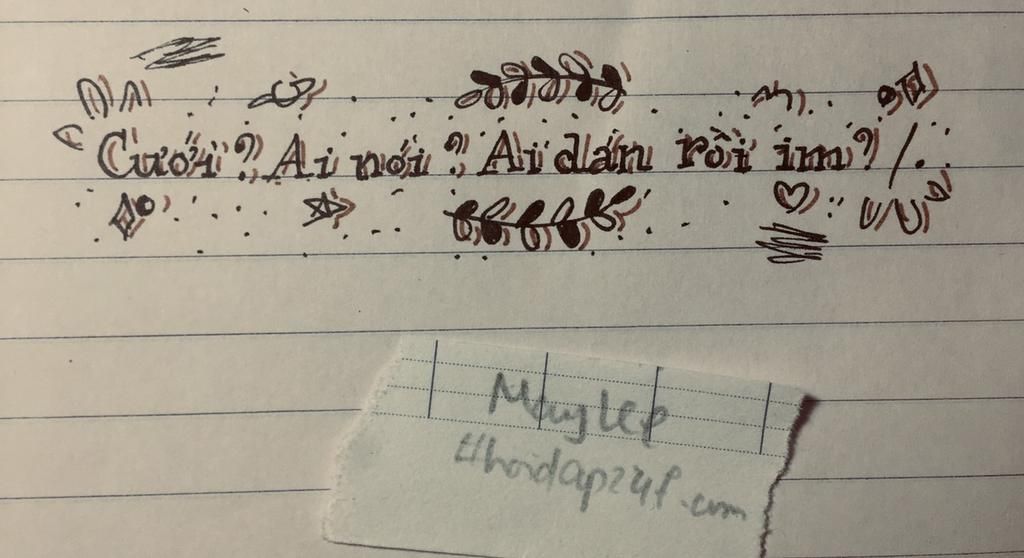 Cưới? Ai nói? Ai dán rồi im?/.
MayLep
#hoidap247.com